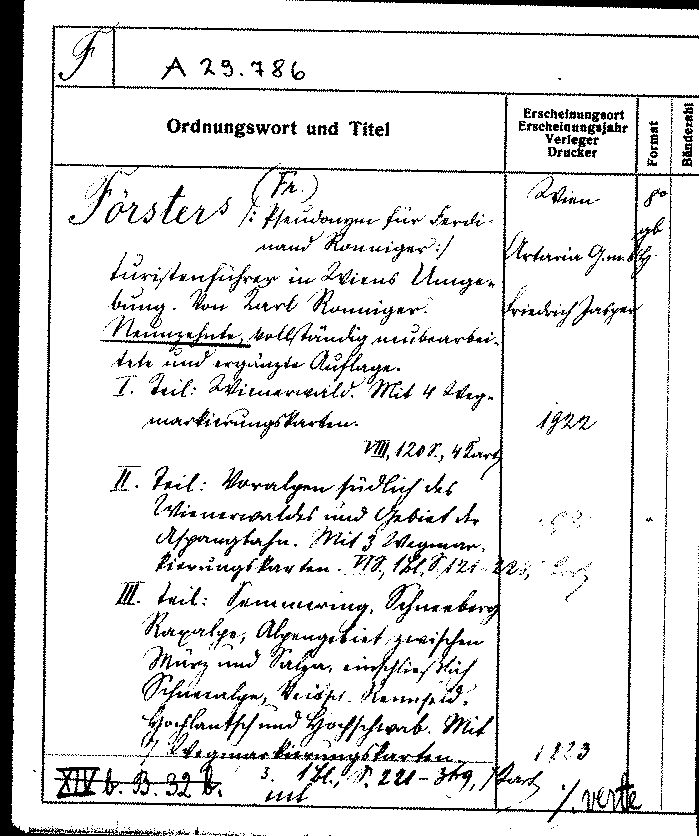 F
A 29.786
Ordnungswort und Titel
Erscheinungsort
Erscheinungsjahr
Verleger
Drucker
Format
Bändezahl
(Fr.)
Försters /: Pseudonym für Ferdi-
nand Ronniger :/
Wien
8°
gb
Artaria G.m.b.H.
Turistenführer in Wiens Umge-
bung. Von Karl Ronniger.
Friedrich Jasper
Neunzehnte, vollständig neubearbei-
tete und ergänzte Auflage.
I. Teil: Wienerwald. Mit 4 Weg-
markierungskarten.
1922
VIII, 120 S., 4 Kart
II. Teil: Voralpen südlich des
Wienerwaldes und Gebiet der
Aspangbahn. Mit 3 Wegmar-
kierungskarten. 1 Bl., S. 121-
III. Teil: Semmering, Schneeberg
Raxalpe, Alpengebiet zwischen
Mürz und Salza, einschließlich
Schneealpe, Veitsch, Rennfeld,
Hochlantsch und Hochschwab. Mit
7 Wegmarkierungskarten.
1923
XIV b. B. 32 b.
3. 1 Bl., S. 221-369, 7 Kart
./. verte